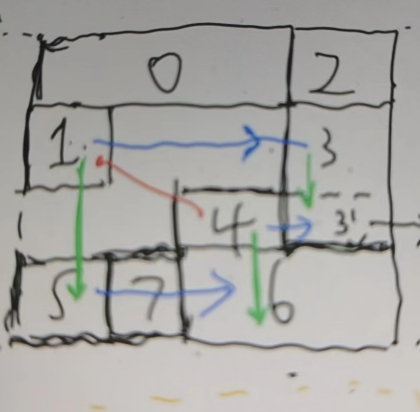 0 2
1 3
4 3'
5 7 6